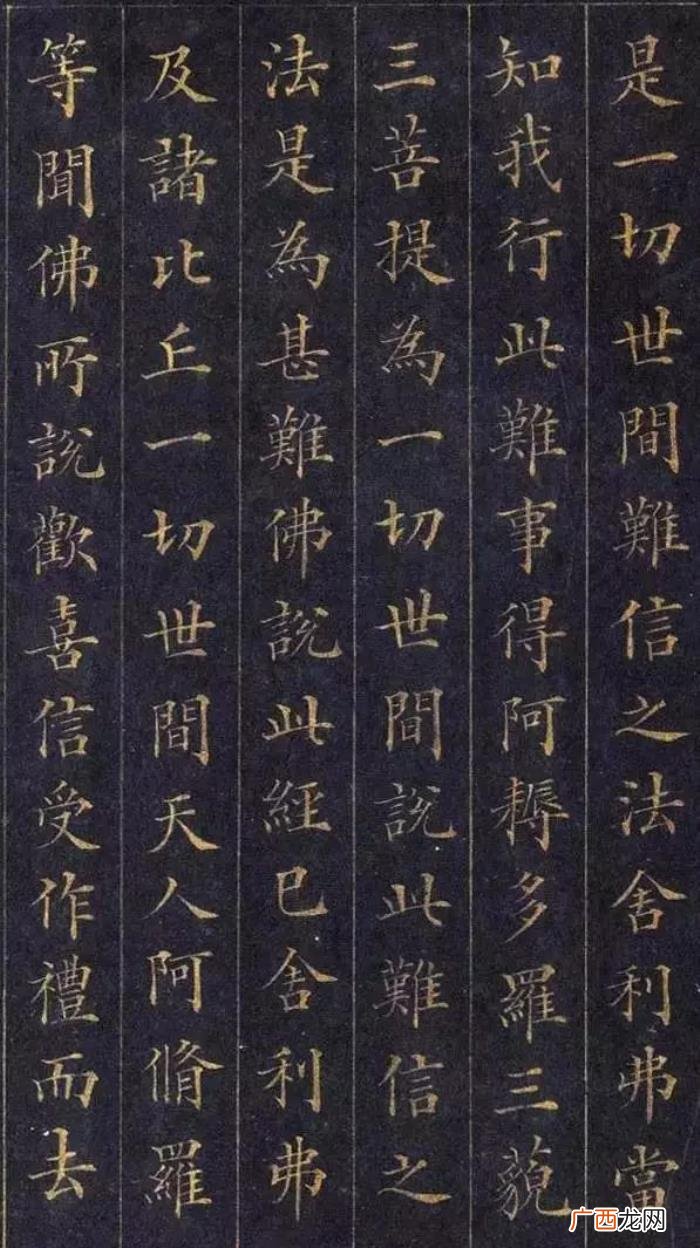 是一切世間難信之法舍利弗當
知我行此難事得阿耨多羅三藐
三菩提為一切世間說此難信之
法是為甚難佛說此經已舍利弗
及諸比丘一切世間天人阿脩羅
等聞佛所說歡喜信受作禮而去
广西龙网